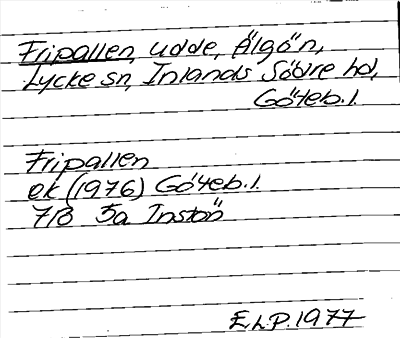 Fripallen, udde, Älgön,
Lycke sn, Inlands Södre hd,
Göteb.l.
Fripallen
ek (1976) Göteb.l.
7B 5a Instön
E.L.P. 1977